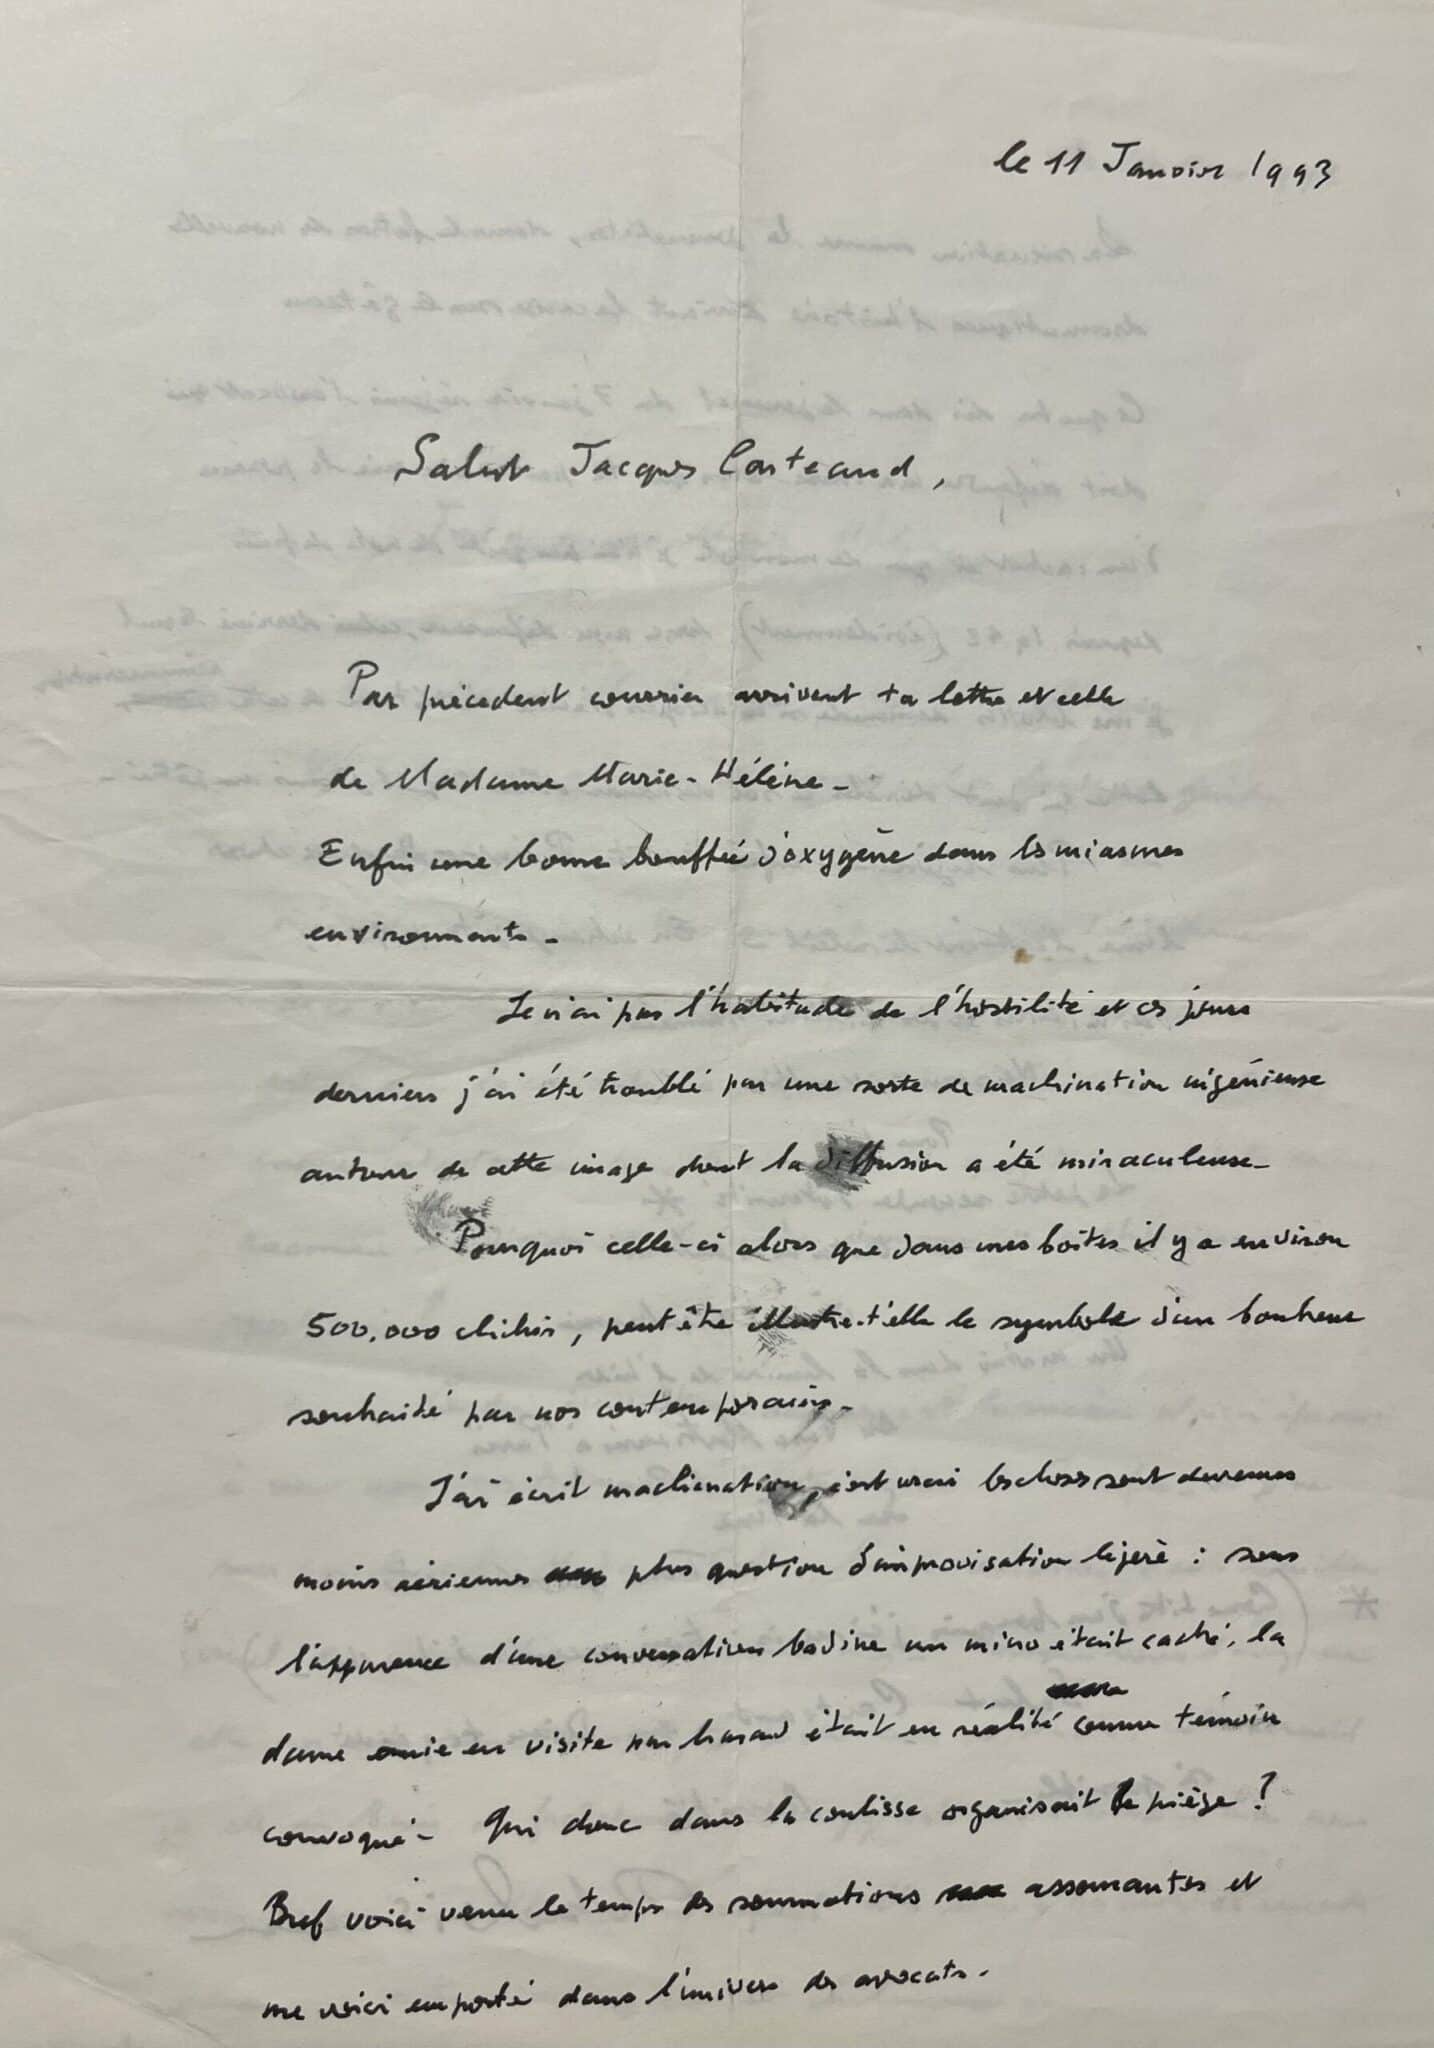 le 11 Janvier 1993
Salut Jacques Carteaud,
Par précédent courrier arrivent ta lettre et celle
de Madame Marie-Hélène-
Enfin une bonne bouffée d'oxygène dans les miasmes
environnants-
Je n'ai pas l'habitude de l'hostilité et ces jours
derniers j'ai été troublé par une sorte de machination ingénieuse
autour de cette image dont la diffusion a été miraculeuse-
Pourquoi celle-ci alors que dans mes boites il y a environ
500.000 clichés, peut être illustre-t'elle le symbole d'un bonheur
souhaité par nos contemporains-
J'ai écrit machination, c'est vrai les choses sont devenues
moins aériennes plus question d'improvisation légère : sous
l'apparence d'une conversation badine un micro était caché, la
dame amie en visite par hasard était en réalité comme témoin
convoqué- Qui donc dans la coulisse organisait le piège ?
Bref voici venu le temps des sommations assomantes et
me voici emporté dans l'univers des avocats-